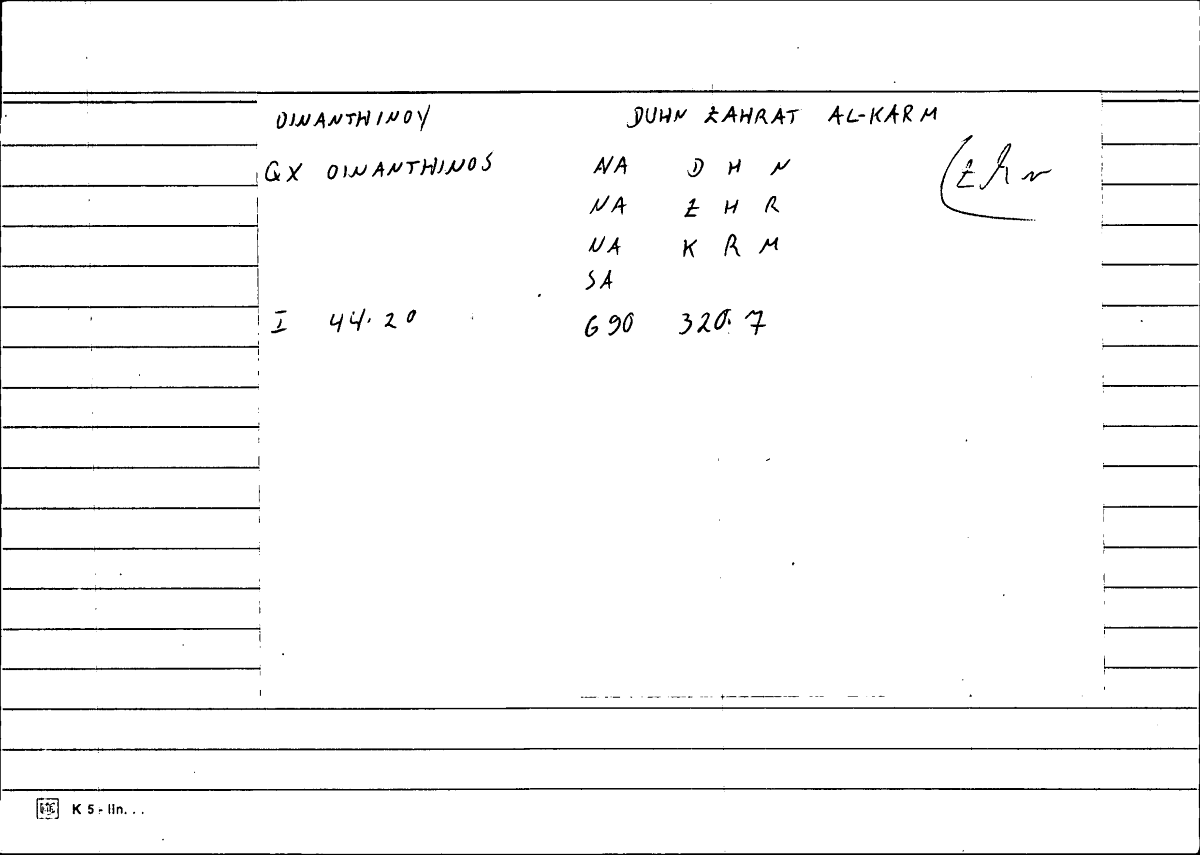 OINANTHINOY DUHN ZAHRAT AL-KARM
QX OINANTHINOS NA D H N (zhr
NA Z H R
NA K R M
SA
I 44.20 690 320.7
K 5 - lin. . .